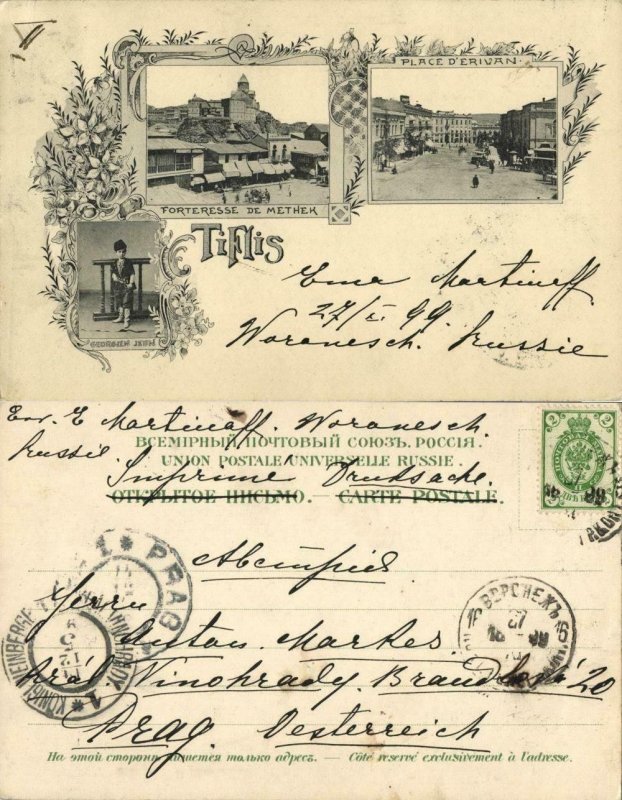 PLACE D'ERIVAN.
FORTERESSE DE METHEK
Tiflis
GEORGIEN JEUN
Martinoff.
27/I. 99.
Woronesch. Russie
E Martinoff. Woronesch
Russie.
ВСЕМІРНЫЙ ПОЧТОВЫЙ СОЮЗЪ. РОССІЯ.
UNION POSTALE UNIVERSELLE RUSSIE.
Imprimé Drucksache
ОТКРЫТОЕ ПИСЬМО. — CARTE POSTALE.
Австрія
PRAG
Herrn
Anton Markes.
Král Vinohrady. 20
Prag Oesterreich
ВОРОНЕЖЪ
На этой сторонѣ пишется только адресъ. — Côté reservé exclusivement à l'adresse.